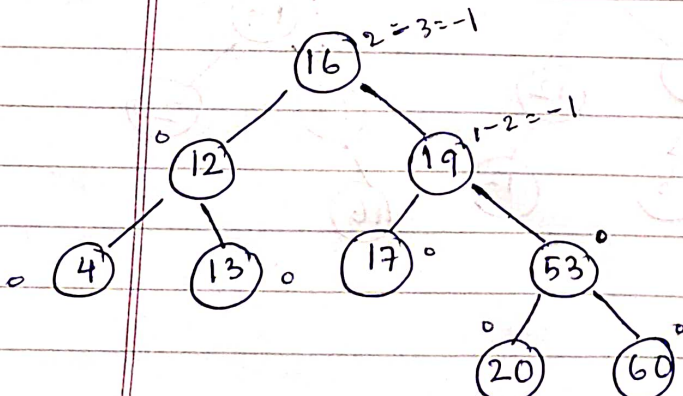 16 2-3=-1
0 12 19 1-2=-1
0 4 13 0 17 0 53 0
0 20 60 0